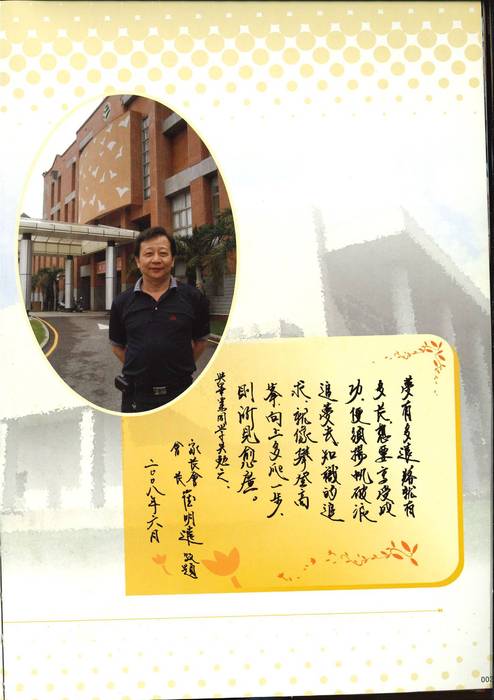 夢有多遠，路就有
多長，想要享受成
功，便須揚帆破浪
追夢去，知識的追
求，就像攀登高
峯，向上多爬一步，
則所見愈廣。
與畢業同學共勉之
家長會
會長 莊明遠 敬題
二〇〇八年六月